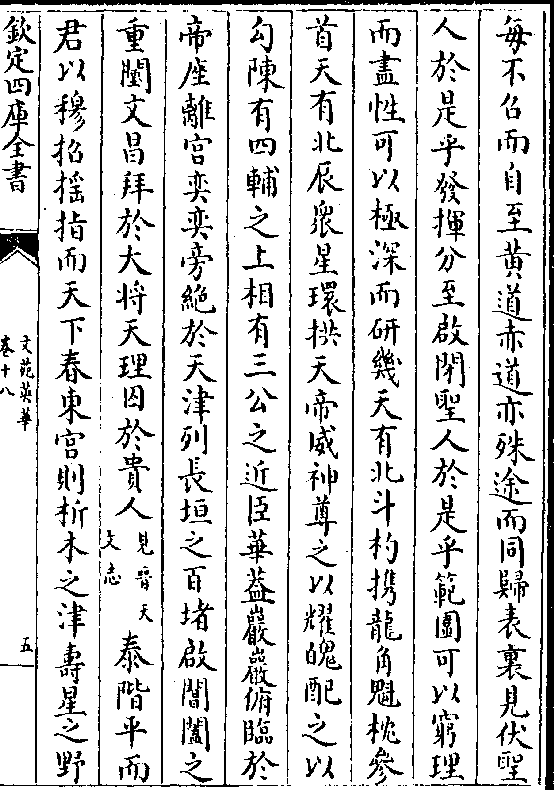 每不召而自至黄道赤道亦殊途而同歸表裏見伏聖
人於是乎發揮分至啟閉聖人於是乎範圍可以窮理
而盡性可以極深而研幾天有北斗杓攜龍角魁枕參
首天有北辰衆星環拱天帝威神尊之以耀魄配之以
勾陳有四輔之上相有三公之近臣華葢巖巖俯臨於
帝座離宮奕奕旁絶於天津列長垣之百堵啟閶闔之
重闉文昌拜於大将天理囚於貴人見晉天文志泰階平而
君以穆招摇指而天下春東宮則析木之津壽星之野
欽定四庫全書
文苑英華
卷十八
五